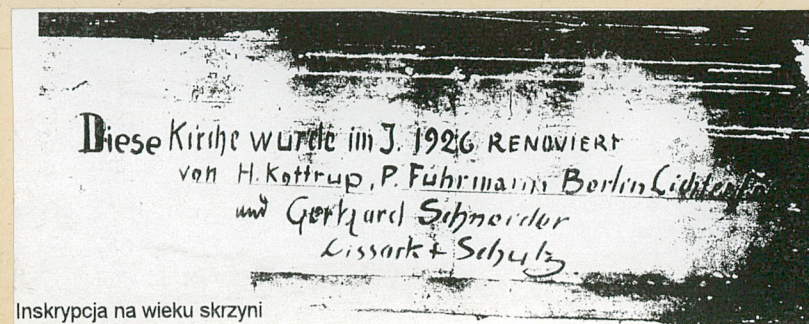 Diese Kirche wurde im J. 1926 RENOVIERT
von H. Kottrup, P. Fuhrmann Berlin
und Gerhard Schneider
Lissark + Schulz
Inskrypcja na wieku skrzyni